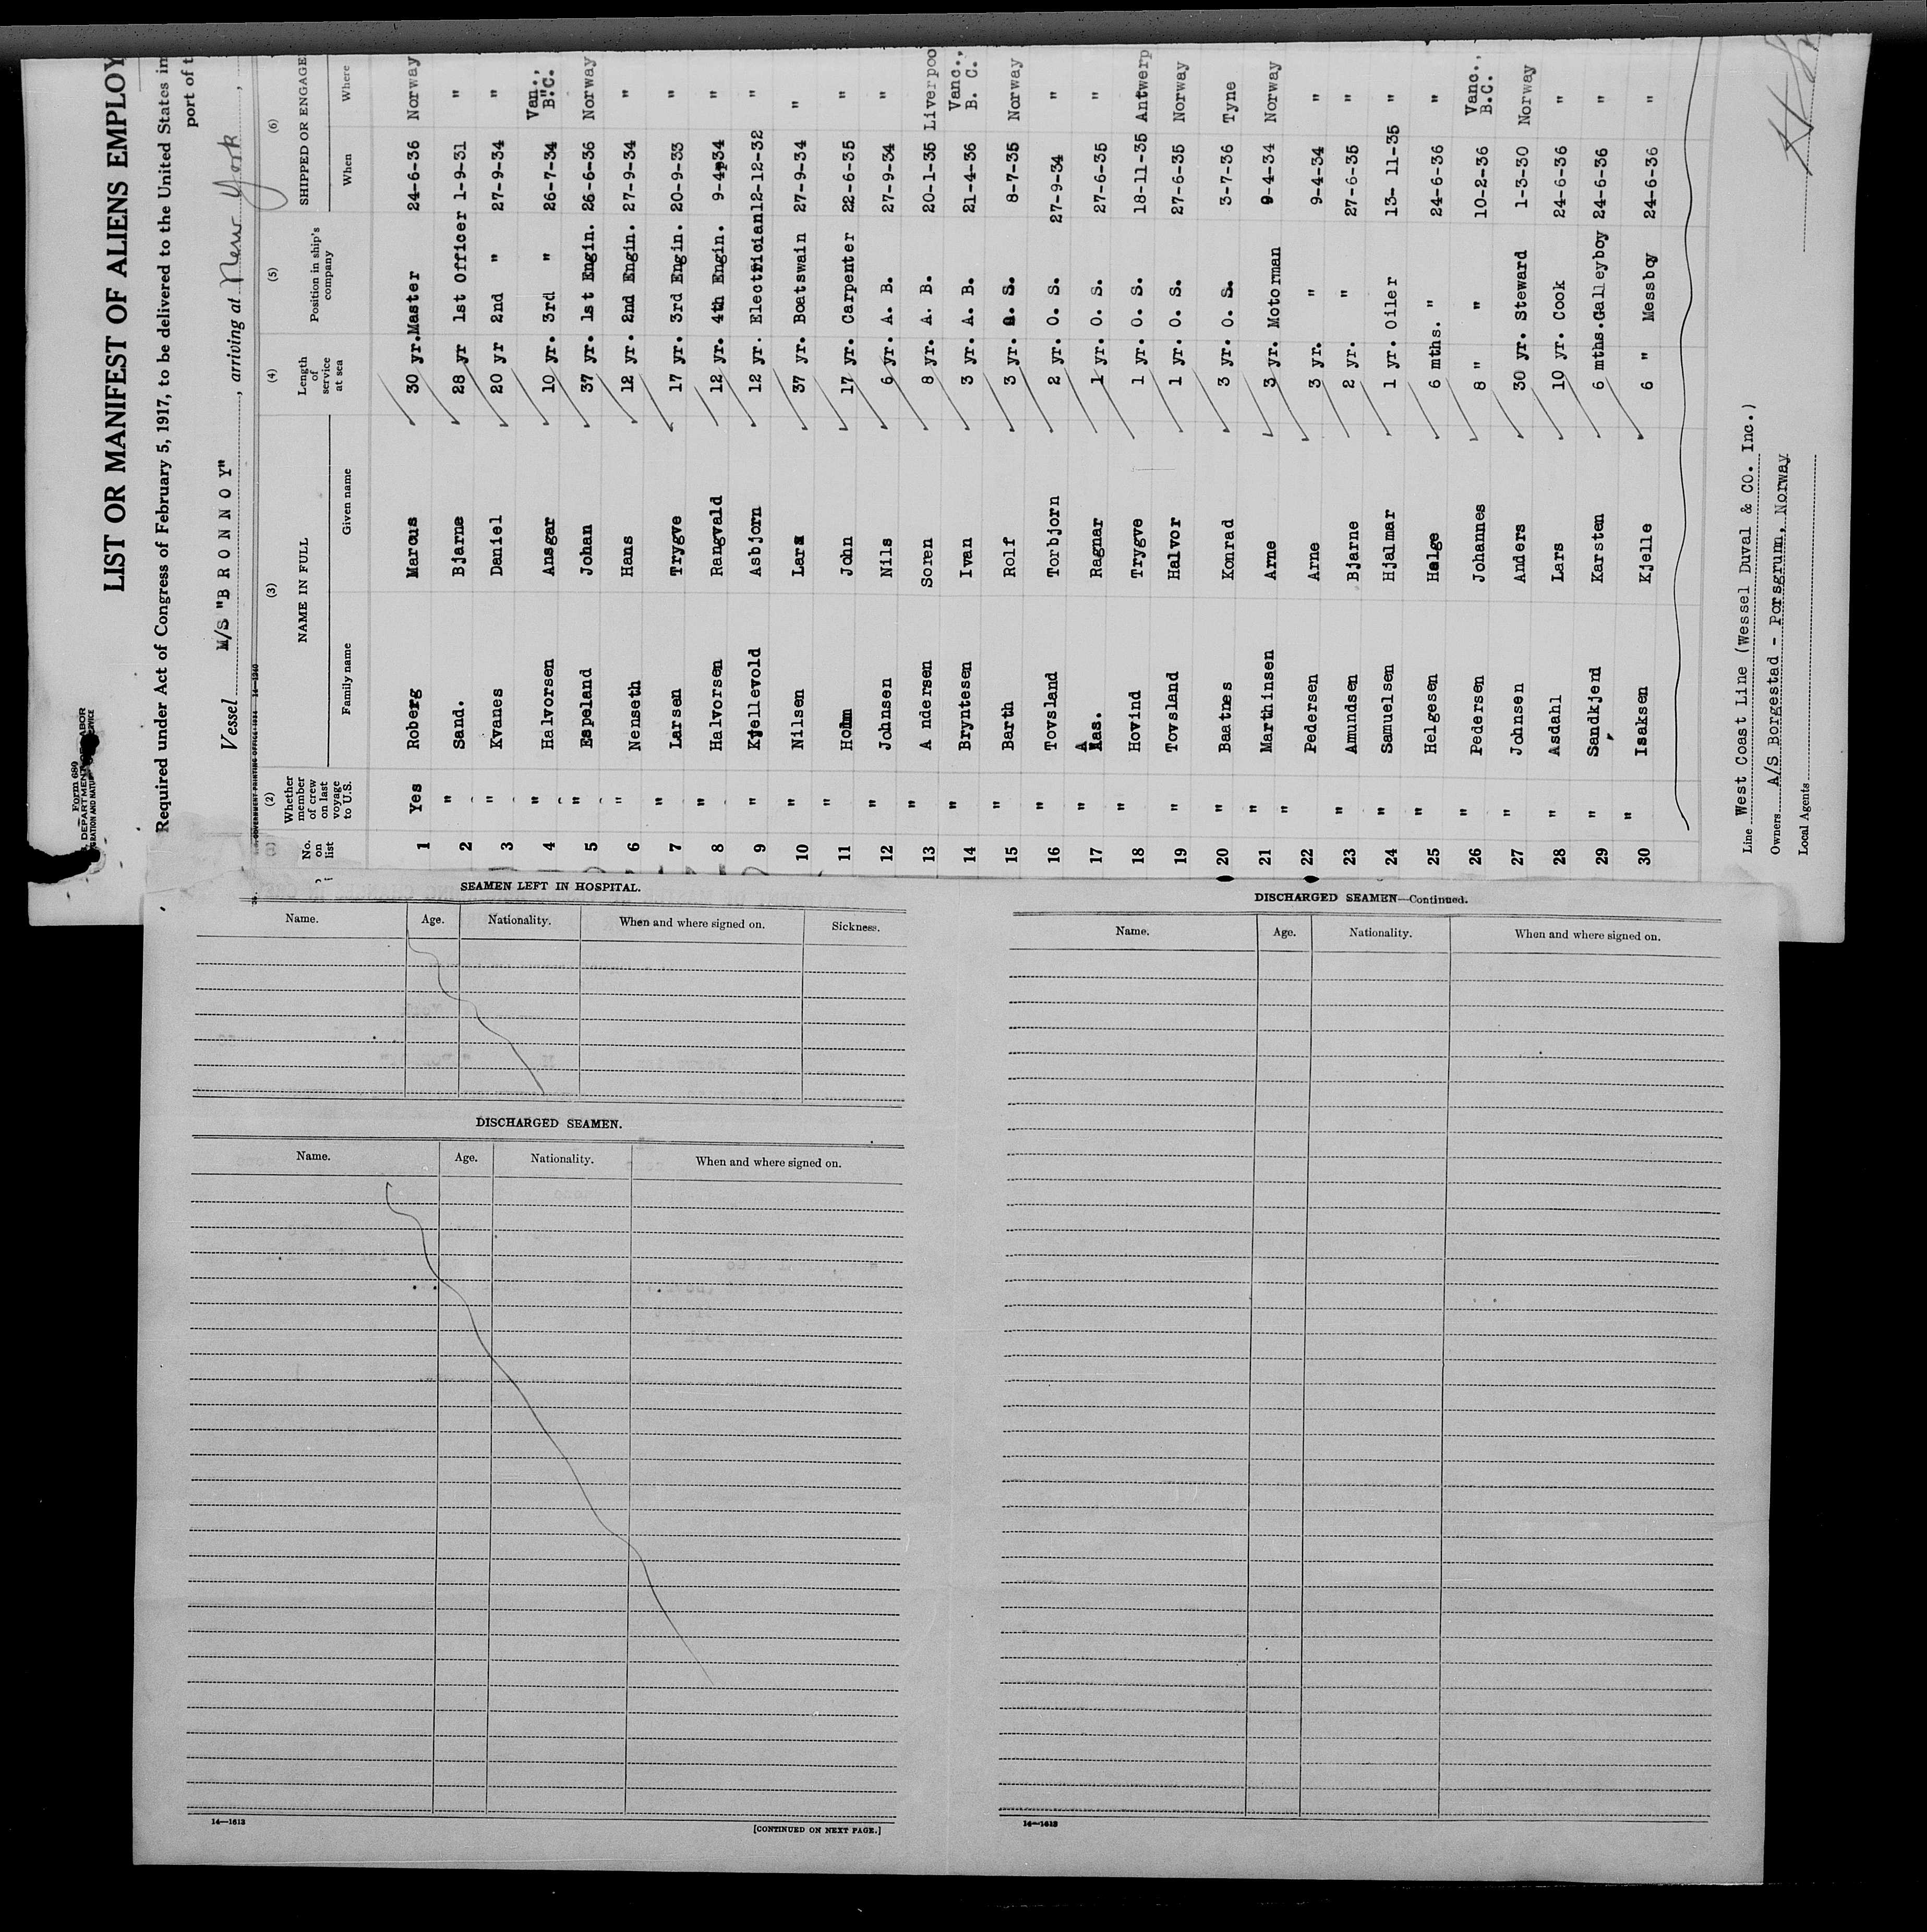 Form 680
DEPARTMENT OF LABOR
LIST OR MANIFEST OF ALIENS EMPLOY
Required under Act of Congress of February 5, 1917, to be delivered to the United States im
port of t
Vessel M/S "B R O N N O Y", arriving at New York,
(1) (2) (3) (4) (5) (6)
No. on list Whether member of crew on last voyage to U.S. NAME IN FULL Length of service at sea Position in ship's company SHIPPED OR ENGAGE
Family name Given name When Where
1 Yes Roberg Marcus 30 yr. Master 24-6-36 Norway
2 " Sand. Bjarne 28 yr 1st Officer 1-9-31 "
3 " Kvanes Daniel 20 yr 2nd " 27-9-34 "
4 " Halvorsen Ansgar 10 yr. 3rd " 26-7-34 Van., B.C.
5 " Espeland Johan 37 yr. 1st Engin. 26-6-36 Norway
6 " Nenseth Hans 12 yr. 2nd Engin. 27-9-34 "
7 " Larsen Trygve 17 yr. 3rd Engin. 20-9-33 "
8 " Halvorsen Rangvald 12 yr. 4th Engin. 9-4-34 "
9 " Kjellevold Asbjorn 12 yr. Electrician 12-12-32 "
10 " Nilsen Lars 37 yr. Boatswain 27-9-34 "
11 " Holm John 17 yr. Carpenter 22-6-35 "
12 " Johnsen Nils 6 yr. A. B. 27-9-34 "
13 " A ndersen Soren 8 yr. A. B. 20-1-35 Liverpoo
14 " Bryntesen Ivan 3 yr. A. B. 21-4-36 Vanc., B. C.
15 " Barth Rolf 3 yr. O. S. 8-7-35 Norway
16 " Tovsland Torbjorn 2 yr. O. S. 27-9-34 "
17 " Aas. Ragnar 1 yr. O. S. 27-6-35 "
18 " Hovind Trygve 1 yr. O. S. 18-11-35 Antwerp
19 " Tovsland Halvor 1 yr. O. S. 27-6-35 Norway
20 " Baatnes Konrad 3 yr. O. S. 3-7-36 Tyne
21 " Marthinsen Arne 3 yr. Motorman 9-4-34 Norway
22 " Pedersen Arne 3 yr. " 9-4-34 "
23 " Amundsen Bjarne 2 yr. " 27-6-35 "
24 " Samuelsen Hjalmar 1 yr. Oiler 13- 11-35 "
25 " Helgesen Helge 6 mths. " 24-6-36 "
26 " Pedersen Johannes 8 " " 10-2-36 Vanc., B.C.
27 " Johnsen Anders 30 yr. Steward 1-3-30 Norway
28 " Asdahl Lars 10 yr. Cook 24-6-36 "
29 " Sandkjern Karsten 6 mths. Galleyboy 24-6-36 "
30 " Isaksen Kjelle 6 " Messboy 24-6-36 "
Line West Coast Line (Wessel Duval & CO. Inc.)
Owners A/S Borgestad - Porsgrunn, Norway
Local Agents
SEAMEN LEFT IN HOSPITAL.
Name. Age. Nationality. When and where signed on. Sickness.
DISCHARGED SEAMEN.
Name. Age. Nationality. When and where signed on.
14—1613
[CONTINUED ON NEXT PAGE.]
DISCHARGED SEAMEN—Continued.
Name. Age. Nationality. When and where signed on.
14—1613